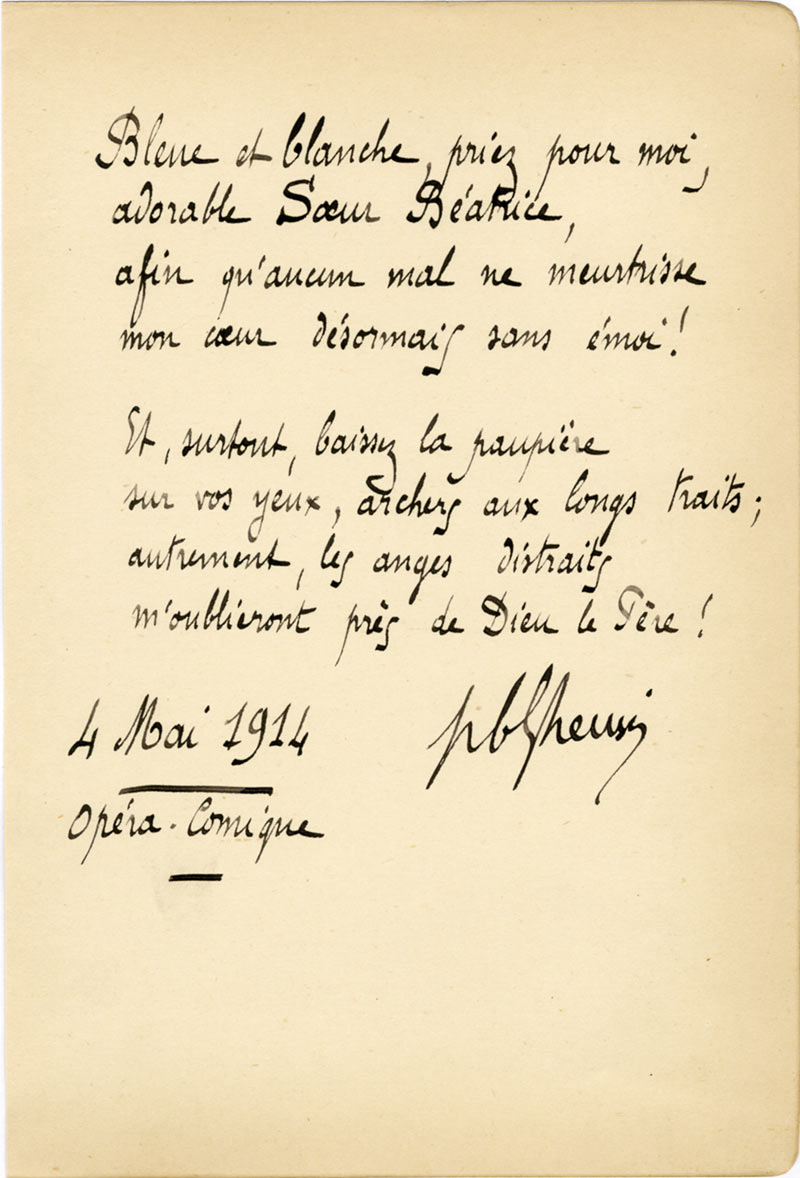 Bleue et blanche, priez pour moi,
adorable Sœur Béatrice,
afin qu'aucun mal ne meurtrisse
mon cœur désormais sans émoi !
Et, surtout, baissez la paupière
sur vos yeux, archers aux longs traits ;
autrement, les anges distraits
m'oublieront près de Dieu le Père !
4 Mai 1914
pbGheusi
Opéra-Comique